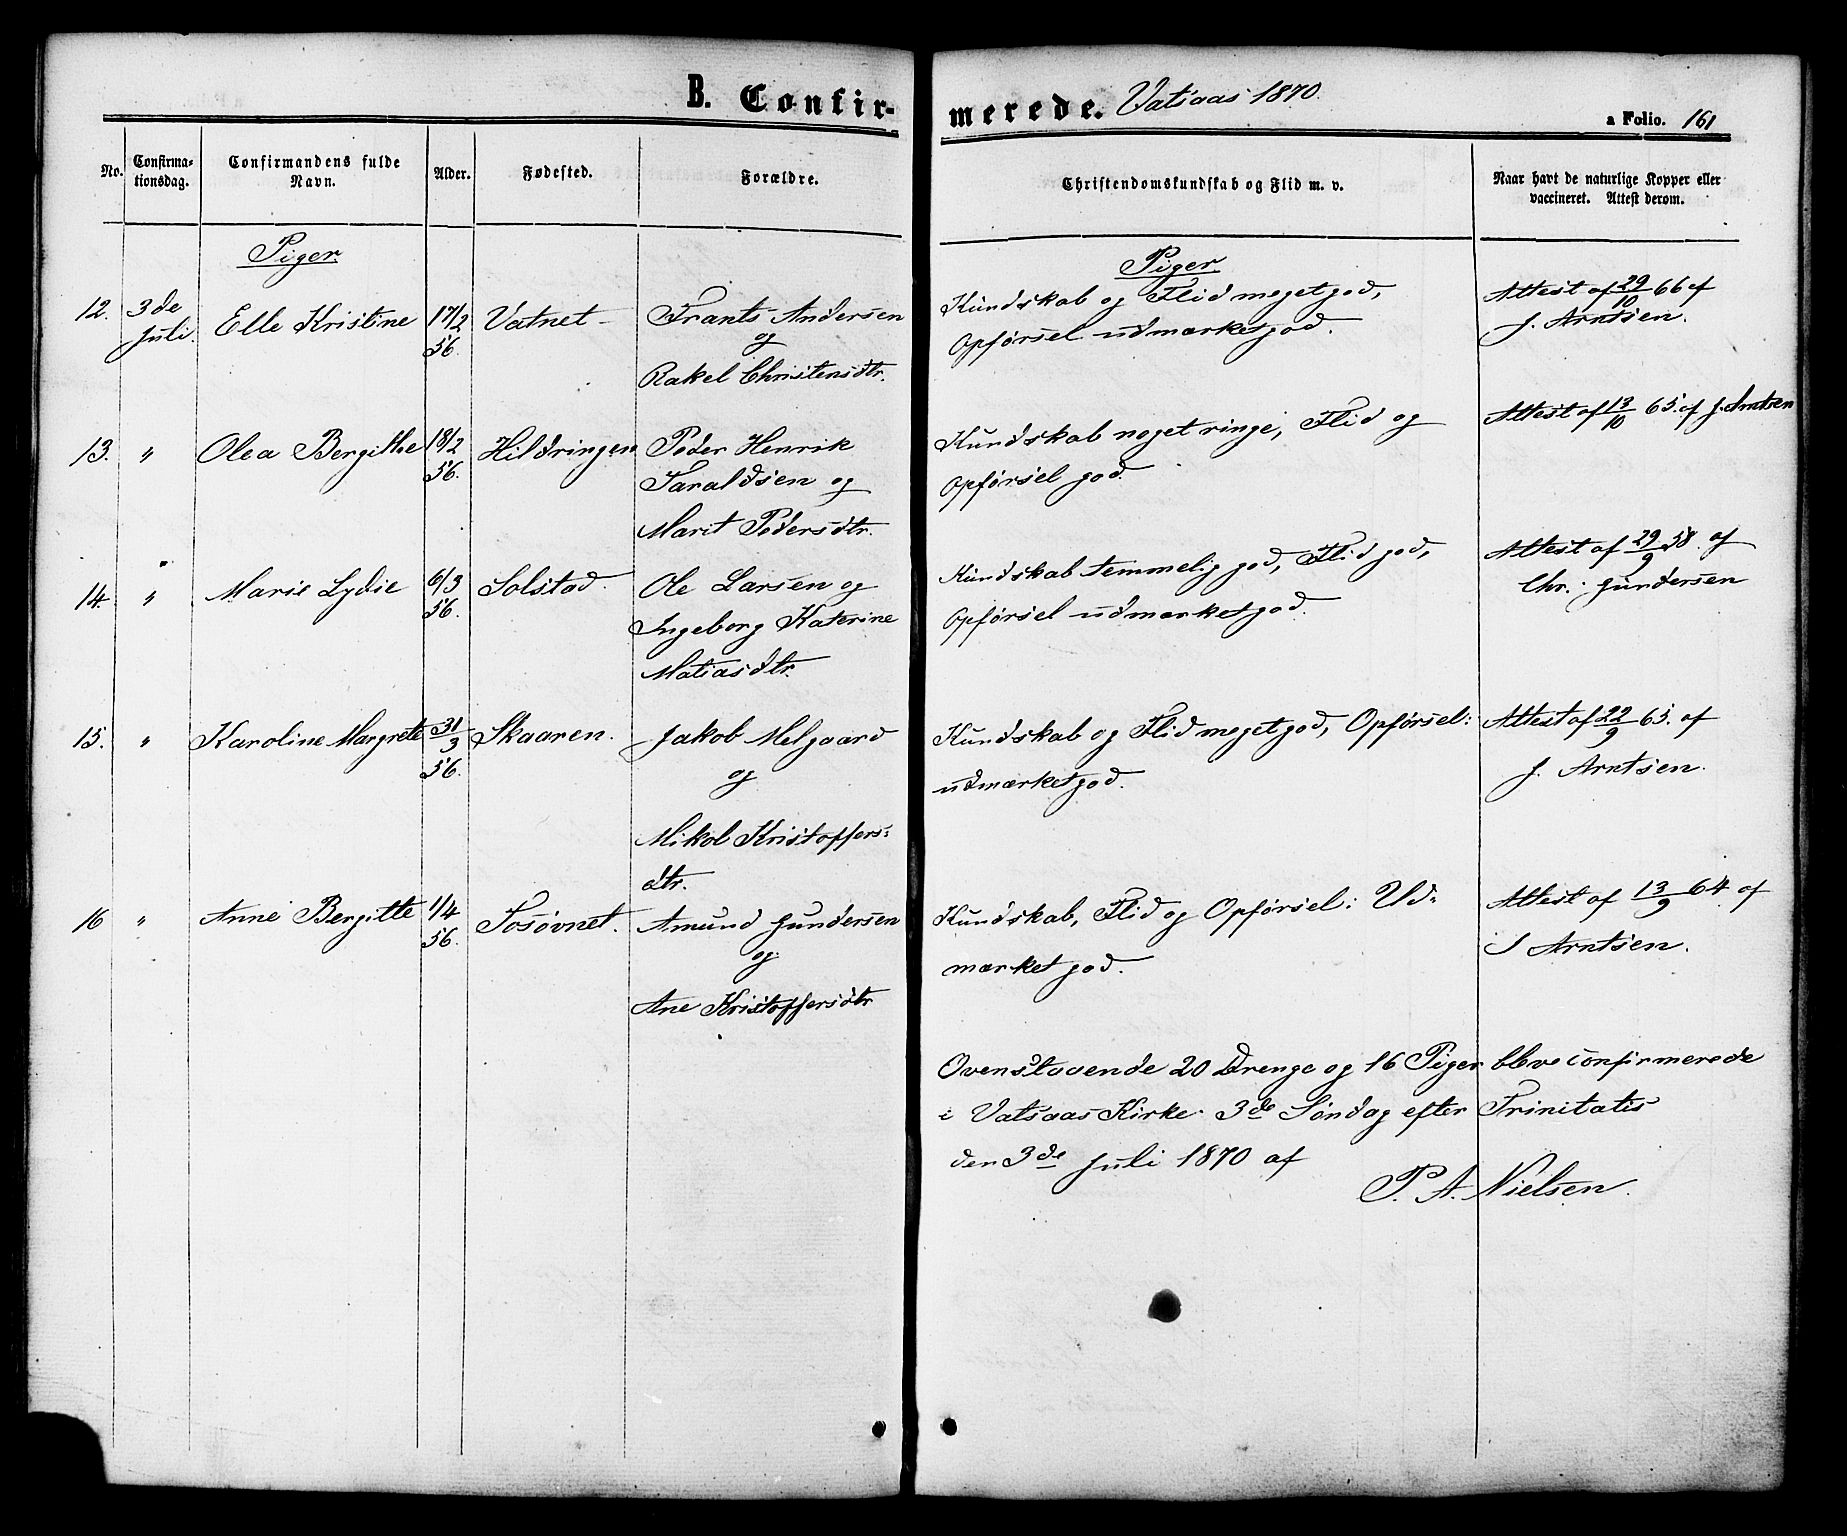 B. Confirmerede. Vatsaas 1870.
a Folio. 161
No.
Confirma-
tionsdag.
Confirmandens fulde
Navn.
Alder.
Fødested.
Forældre.
Christendomskundskab og Flid m. v.
Naar havt de naturlige Kopper eller
vaccineret. Attest derom.
Piger
Piger
12. 3de Elle Kristine 17/2 Vatnet Frants Andersen Kundskab og Flid megetgod, Attest af 29/10 66 af
Juli. 56. og Opførsel udmærketgod. J. Arntsen.
Rakel Christensdtr.
13. " Olea Bergitte 18/2 Hildringen Peder Henrik Kundskab noget ringe, Flid og Attest af 13/10 65. af J. Arntsen
56. Saraldsen og Opførsel god.
Marit Pedersdtr.
14. " Marie Lydie 6/3 Solstad Ole Larsen og Kundskab temmelig god, Flid god, Attest af 29/9 58. af
56. Ingeborg Katerine Opførsel udmærketgod. Chr. Gundersen
Matiasdtr.
15. " Karoline Margrete 31/3 Skaaren. Jakob Melgaard Kundskab og Flid megetgod, Opførsel: Attest af 22/9 65. af
56. og udmærketgod. J. Arntsen.
Mikol Kristoffers-
dtr.
16 " Anne Bergitte 1/4 Sosøvnet. Amund Gundersen Kundskab, Flid og Opførsel: Ud- Attest af 13/9 64. af
56. og mærket god. J Arntsen.
Ane Kristoffersdtr
Ovenstaaende 20 Drenge og 16 Piger bleve confirmerede
i Vatsaas Kirke 3de Søndag efter Trinitatis
den 3de Juli 1870 af
P. A. Nielsen.